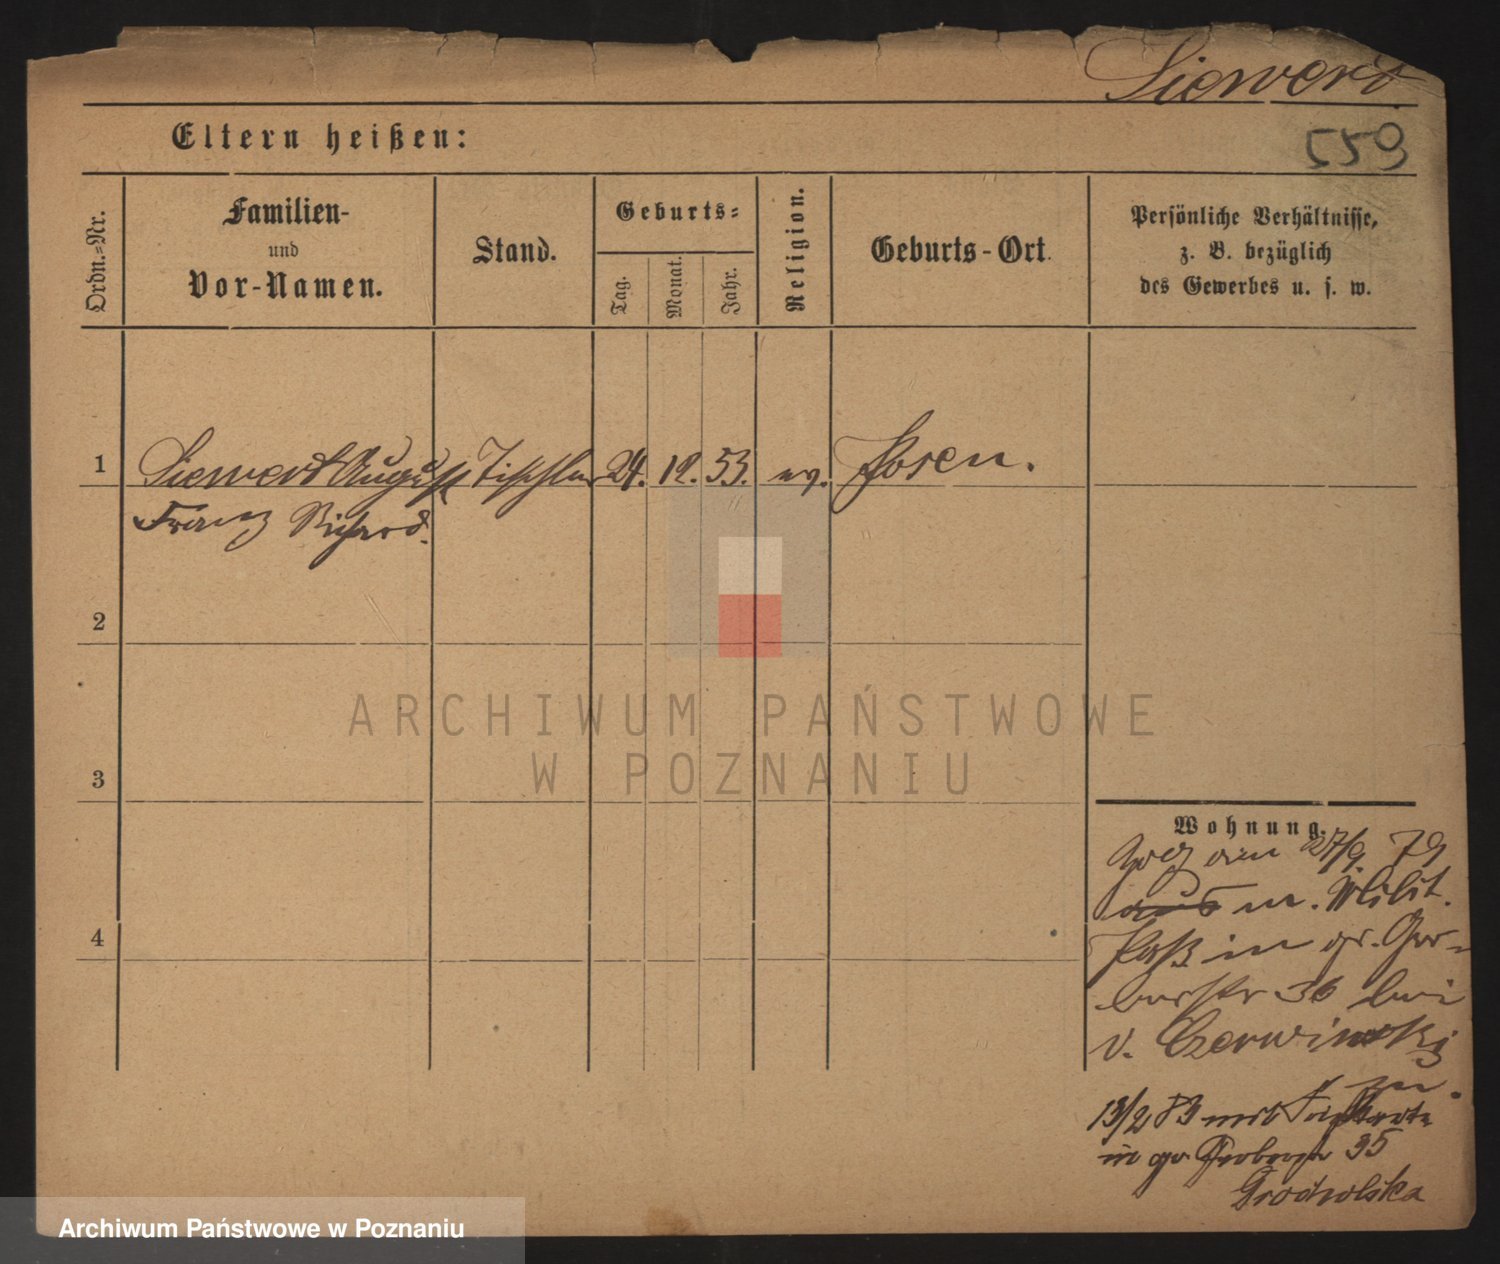 Siewert
559
Eltern heißen:
Ordn.-Nr.
Familien-
und
Vor-Namen.
Stand.
Geburts-
Tag.
Monat.
Jahr.
Religion.
Geburts-Ort.
Persönliche Verhältnisse,
z. B. bezüglich
des Gewerbes u. s. w.
1
Siewert August Tischler 24. 12. 53. ev. Posen.
Franz Richard.
2
3
4
ARCHIWUM PAŃSTWOWE
W POZNANIU
Wohnung.
Zog am 27/9. 79
aus m. Milit.
Paß in gr. Ger-
berstr 36 bei
v. Czerwinski
zu.
13/2 83 mit
in gr. Gerberstr 35
Grodzolska
Archiwum Państwowe w Poznaniu